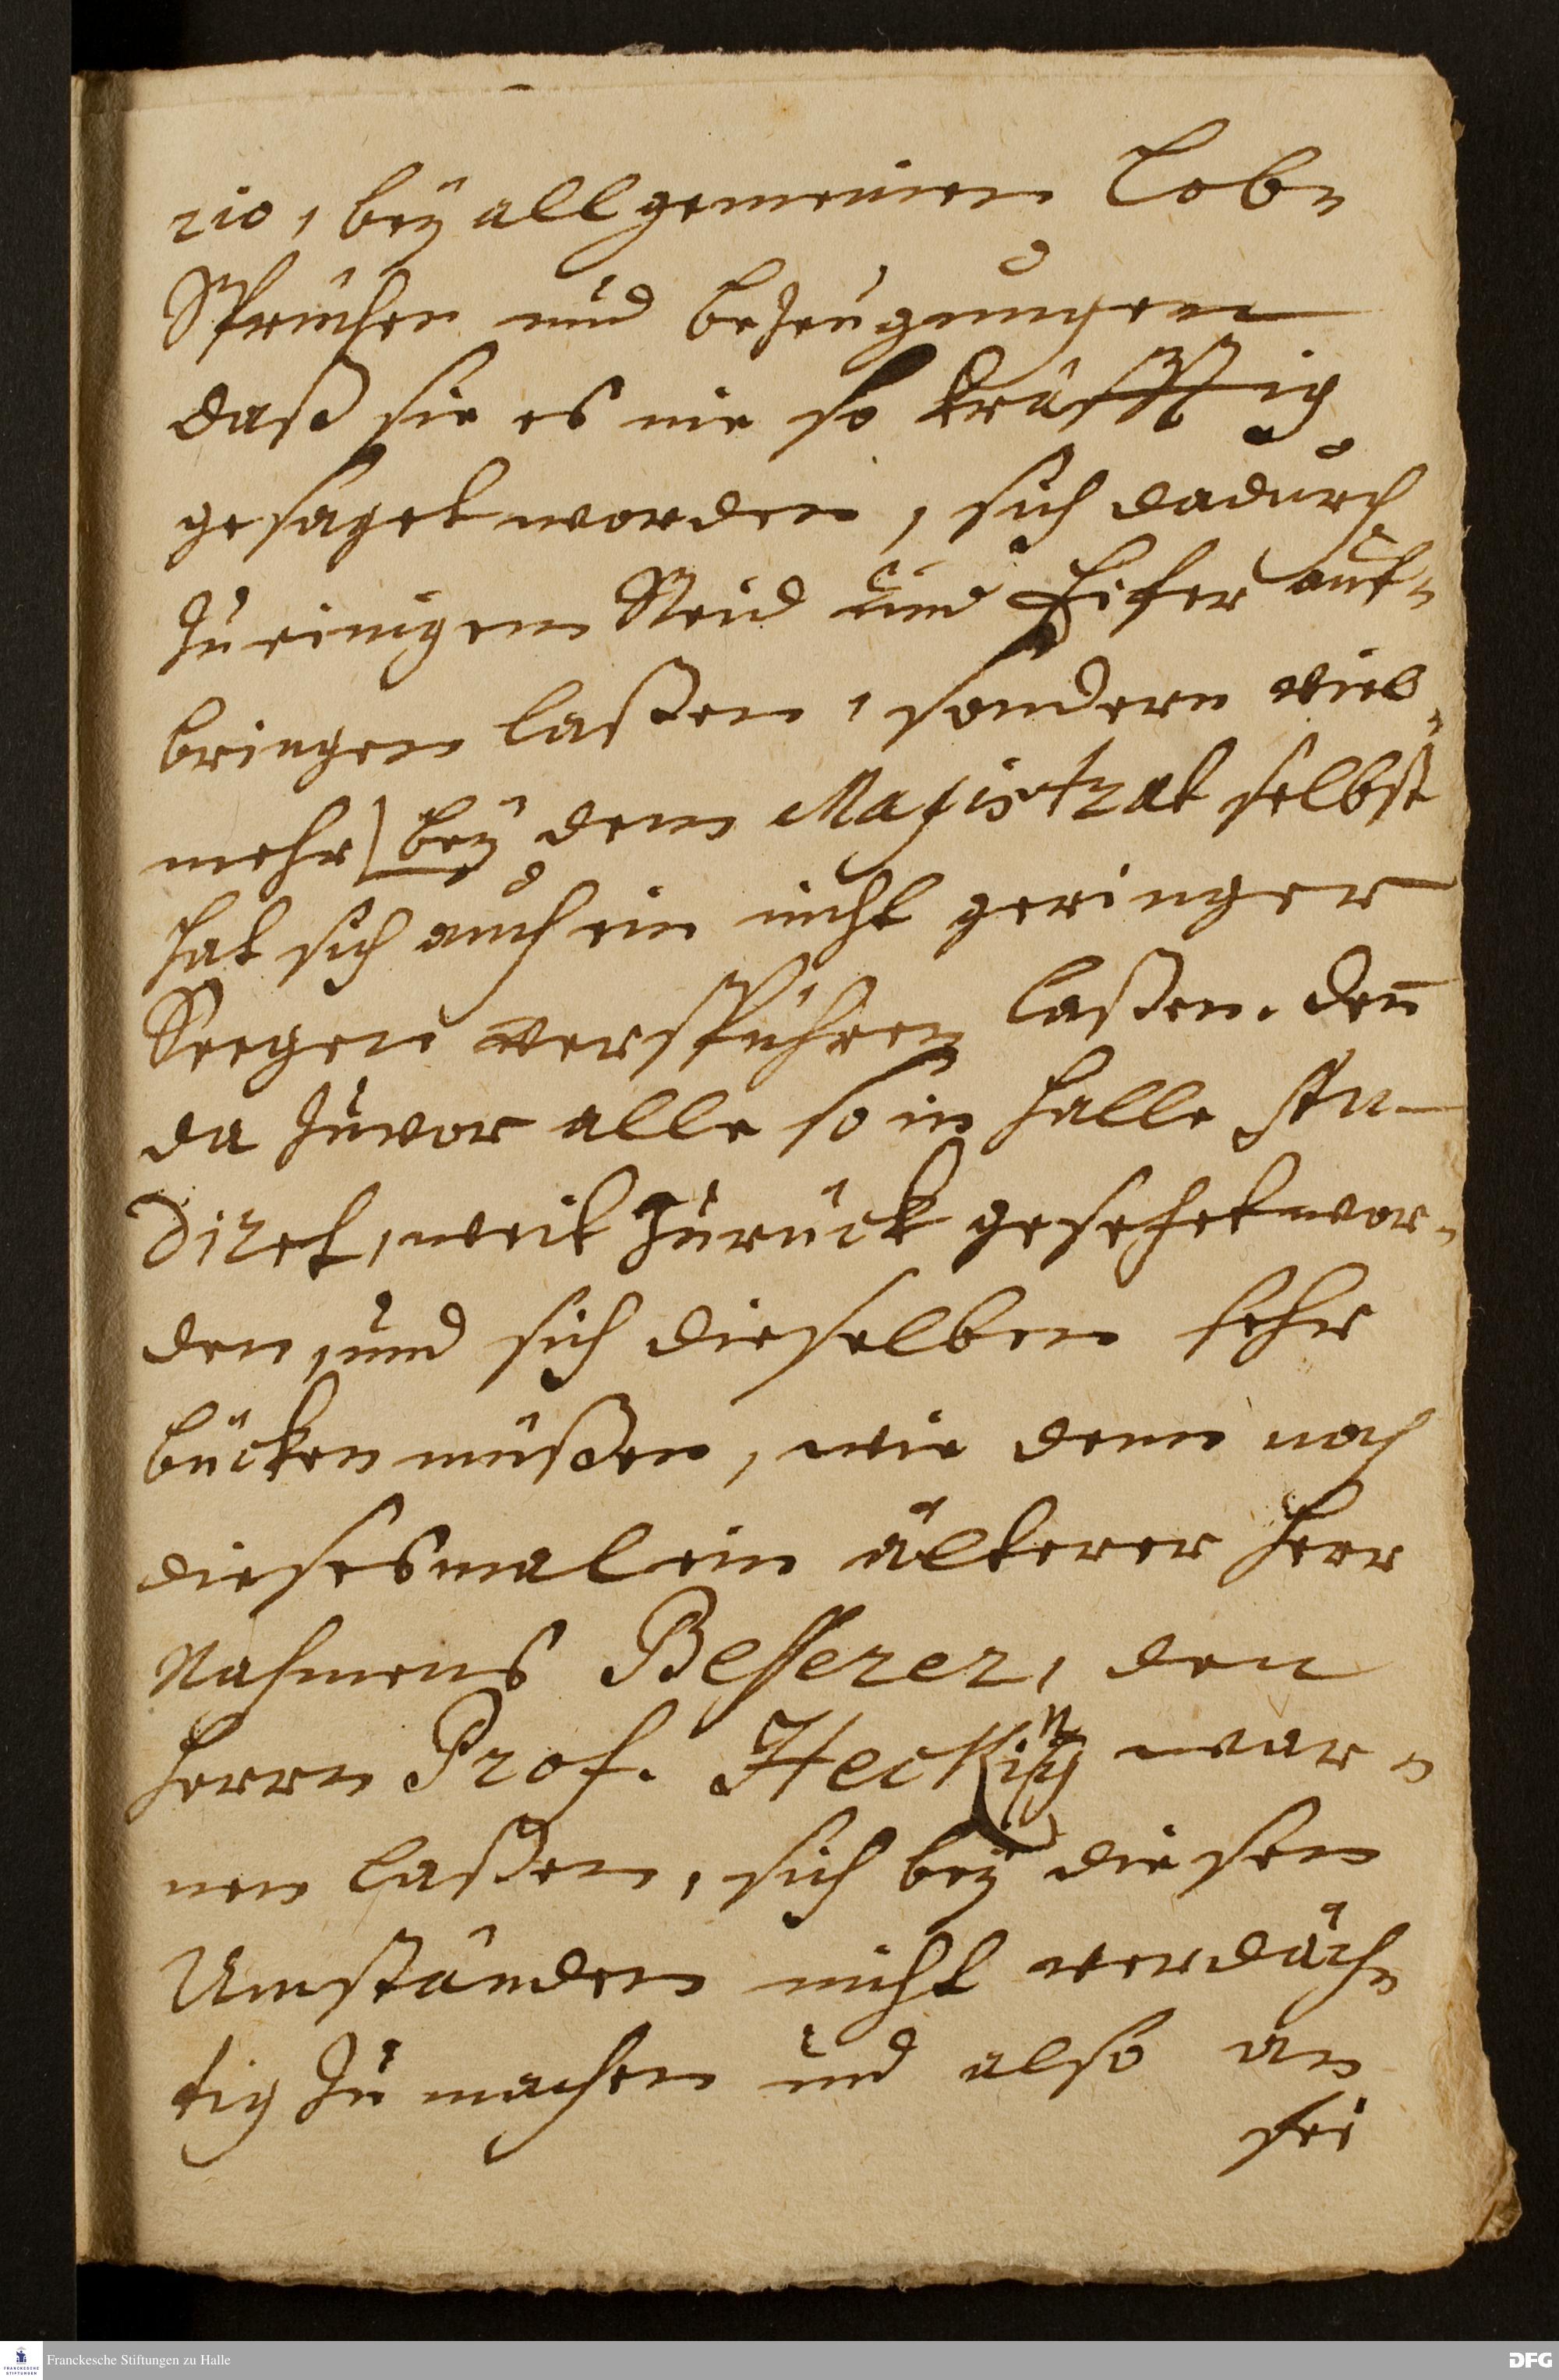 rio, beÿ allgemeinen Lob-
Sprüchen und bezeugungen
daß sie es nie so kräfftig
gesaget worden, sich dadurch
zu einigem Neid und Eifer auf-
bringen laßen, sondern viel-
mehr) beÿ dem Magistrat selbst
hat sich auch ein nicht geringer
Seegen verspühren laßen. den̄
da zuvor alle so in Halle stu-
diret, weit zurück gesetzet wor-
den, und sich dieselben sehr
bücken müßen, wie denn noch
diesesmal ein älterer Herr
Nahmens Besserer, den
Herrn Prof. Hecking war-
nen laßen, sich beÿ diesen
Umständen nicht verdäch-
tig zu machen und also an
sei
Franckesche Stiftungen zu Halle
FRANCKESCHE STIFTUNGEN
DFG